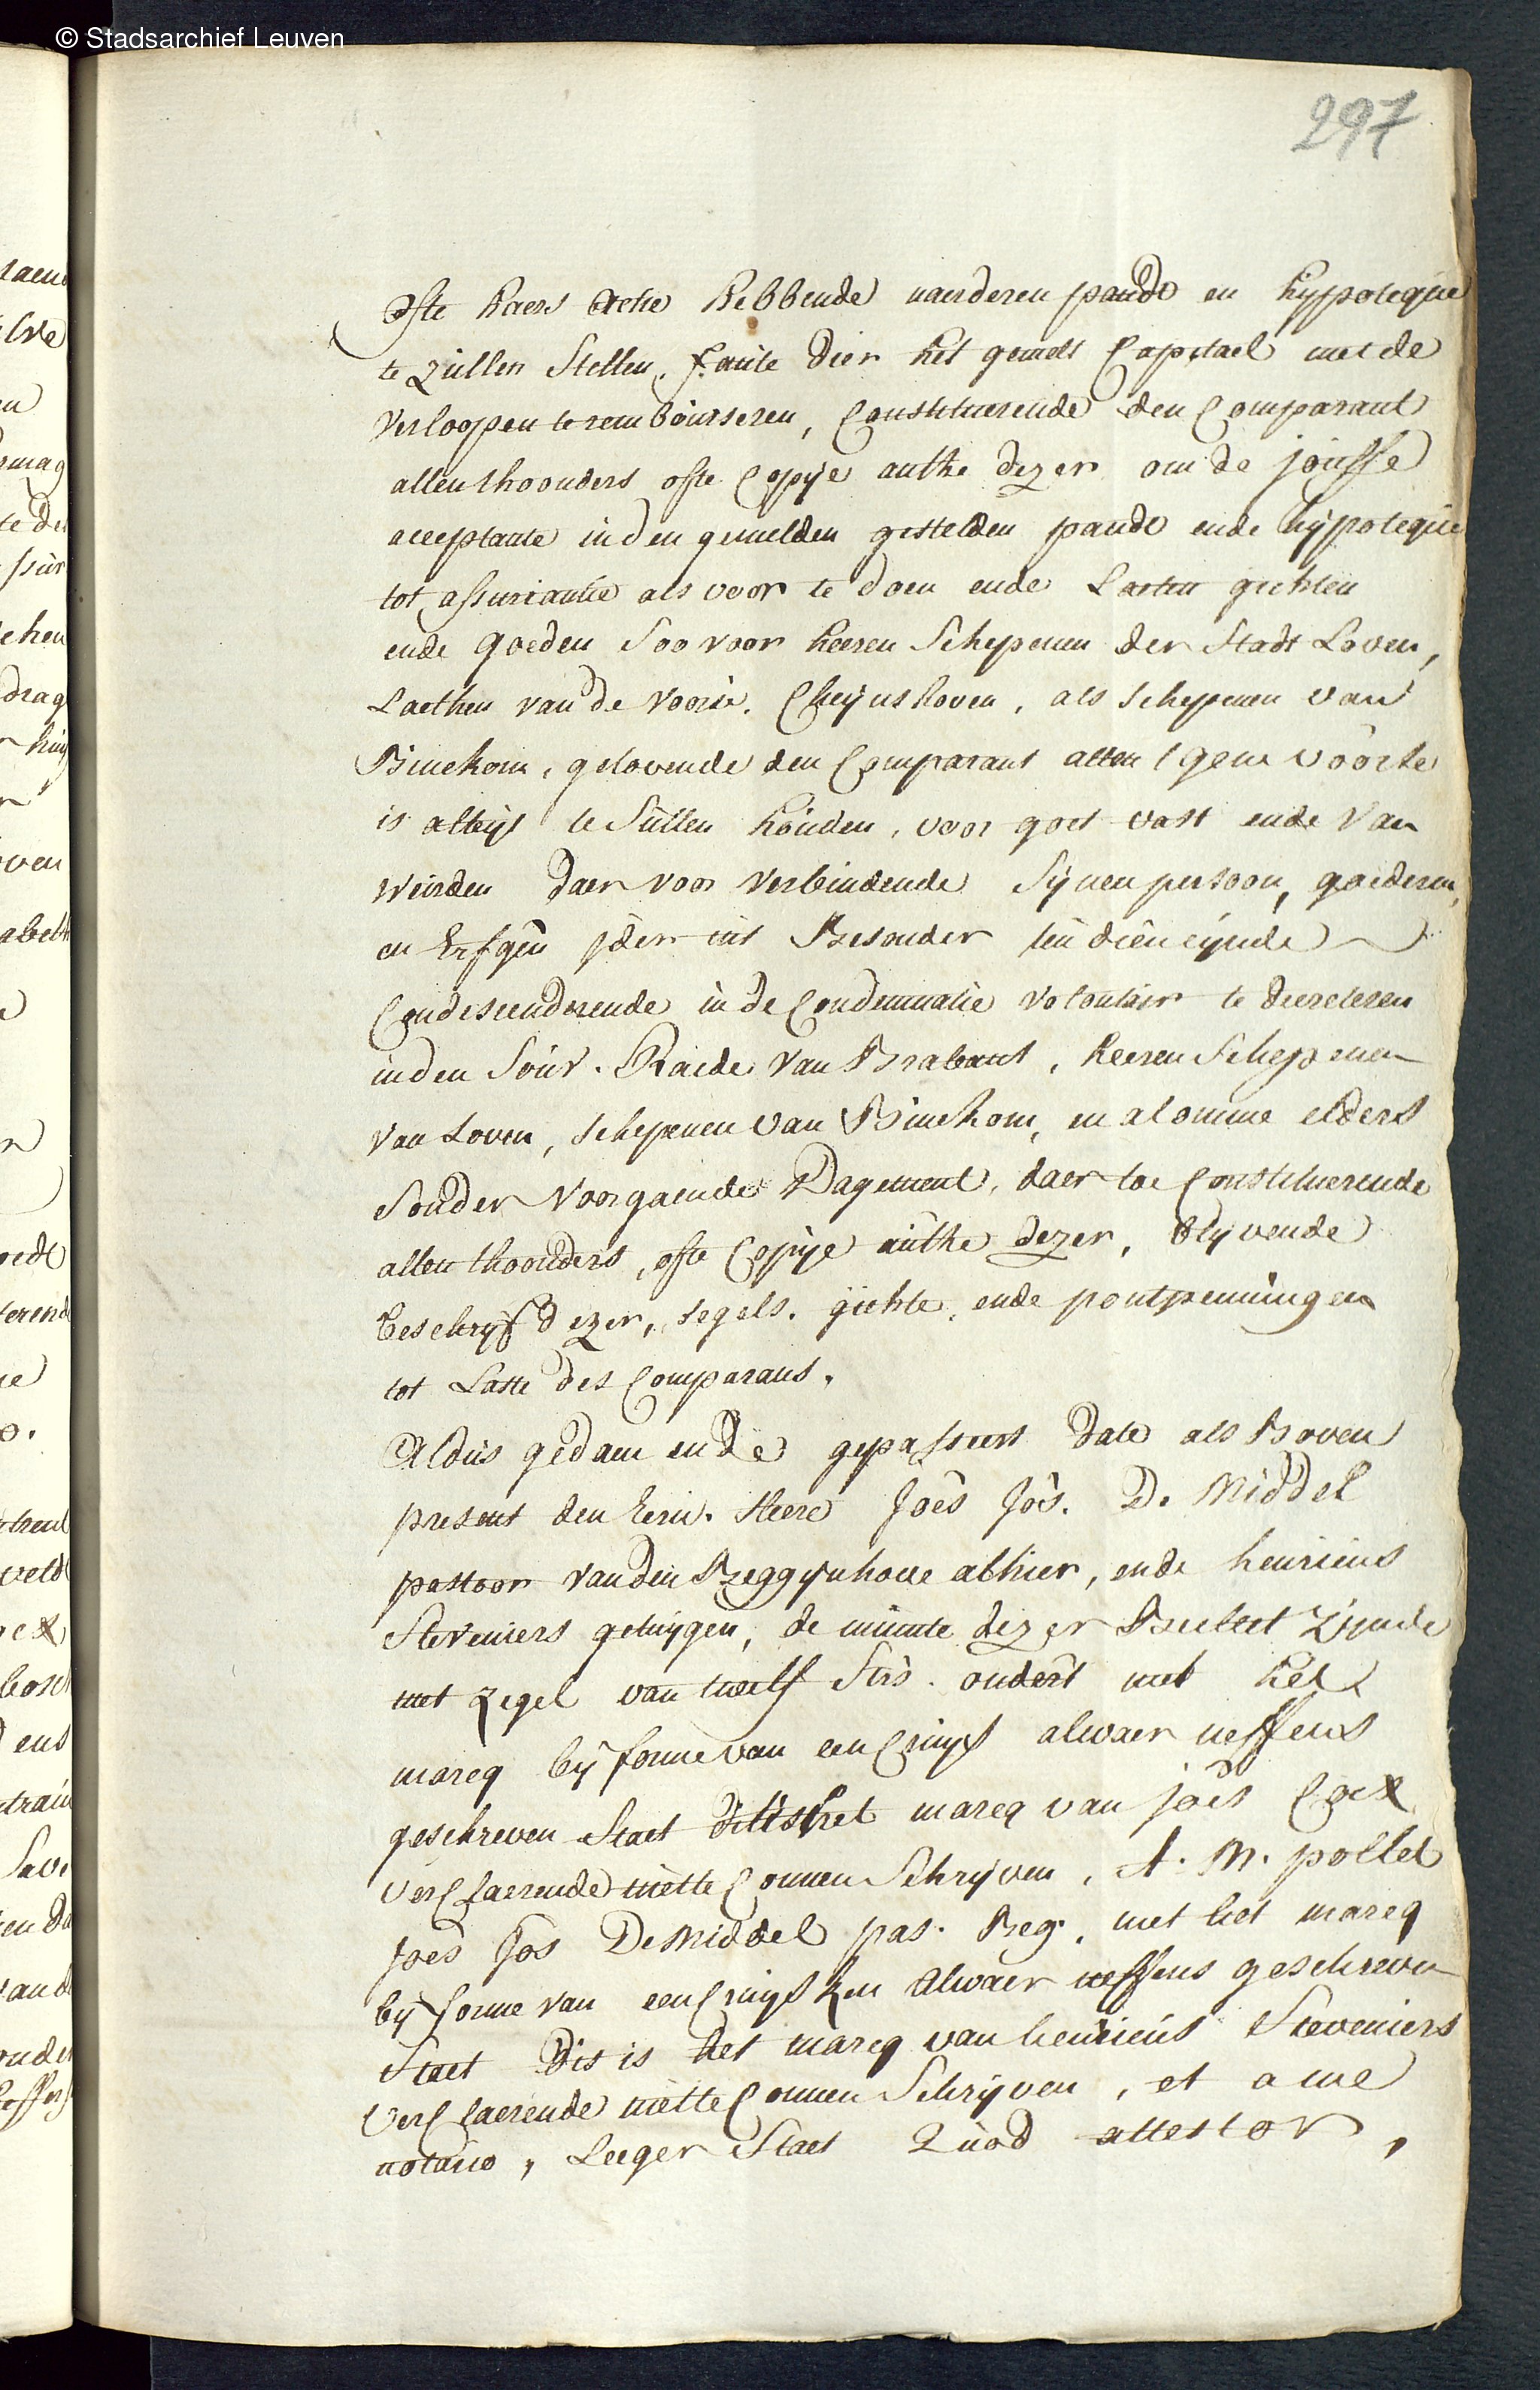 © Stadsarchief Leuven
297
Ofte haers Actie hebbende naerderen pandt en hypoteque
te zullen stellen, faute dier het gemelt Capitael met de
verloopen te rembourseren, Constituerende den Comparant
allen thoonders ofte Copije authe dezer om de jouffe
acceptante in den gemelden gestelden pandt ende hypoteque
tot assurantie als voor te doen ende Laeten gichten
ende goeden Soo voor heeren Schepenen der Stadt Loven,
Laethen van de voors. Cheijnshoven, als schepenen van
Binckom, gelovende den Comparant allen tgene voorse
is alteijt te Sullen houden, voor goet vast ende Van
weirden daer voor verbindende Sijnen persoon, goederen,
en Erfgen jder int Besonder ten dien eijnde
Condescenderende in de Condemnatie volontair te decreteren
inden Souv. Raede van Brabant, heeren Schepenen
van Loven, schepenen van Binckom, en alomme elders
Sonder voorgaende Dagement, daer toe Constituerende
allen thoonders, ofte Copije authe dezer, blijvende
beschryf dezer, segels. gichte, ende pontpenningen
tot Laste des Comparant.
Aldus gedaen ende gepasseert date als Boven
present den Eerw. Heere Joes Jos. De Middel
pastoor vanden Beggijnhove alhier, ende henricus
Steveniers getuygen, de minute dezer Beclect zijnde
met zegel van twelf Strs. ondert met het
marcq bij forme van een Cruys alwaer neffens
geschreven staet dit is het marcq van joes Cox
verclaerende niette Connen Schrijven, A. M. pollet
Joes Jos De Middel pas. Beg. met het marcq
bij forme van een Cruysken alwaer neffens geschreven
Staet Dis is het marcq van henricus Steveniers
verclaerende niette Connen Schrijven, et a me
notario, Leeger Staet Quod attestor,